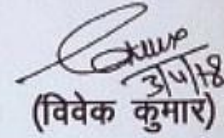 3/4/18
(विवेक कुमार)